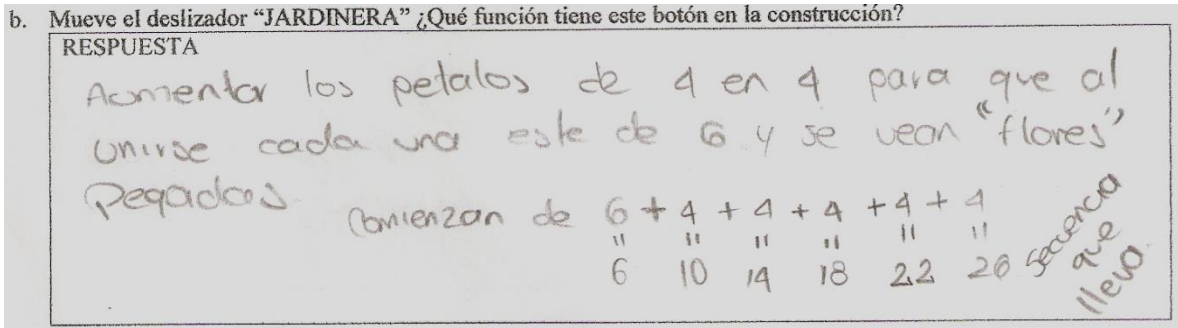 b. Mueve el deslizador “JARDINERA” ¿Qué función tiene este botón en la construcción?
RESPUESTA
Aumentar los petalos de 4 en 4 para que al
unirse cada una este de 6 y se vean "flores"
pegadas
Comienzan de 6 + 4 + 4 + 4 + 4 + 4
" " " " " "
6 10 14 18 22 26
Secuencia
que
lleva